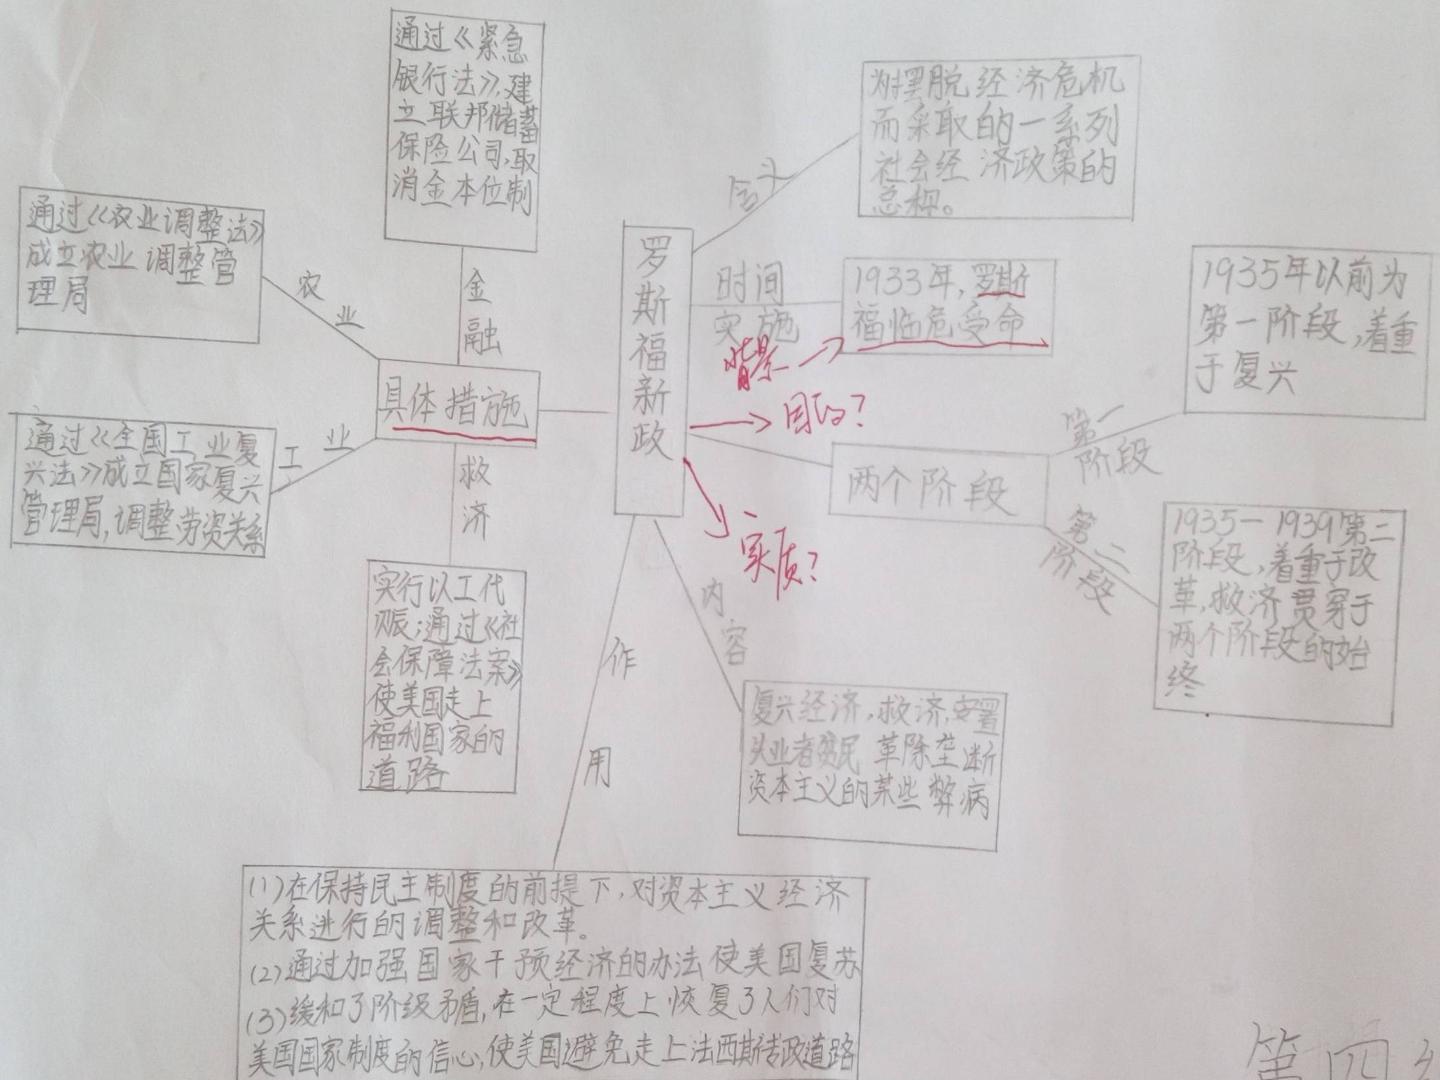 通过《紧急
银行法》,建
立联邦储蓄
保险公司,取
消金本位制
金
融
通过《农业调整法》
成立农业调整管
理局
农
业
具体措施
通过《全国工业复
兴法》成立国家复兴
管理局,调整劳资关系
工
业
救
济
实行以工代
赈;通过《社
会保障法案》
使美国走上
福利国家的
道路
罗
斯
福
新
政
含义
为摆脱经济危机
而采取的一系列
社会经济政策的
总称。
时间
实施
1933年,罗斯
福临危受命
背景
目的?
实质?
两个阶段
第一
阶段
1935年以前为
第一阶段,着重
于复兴
第二
阶段
1935-1939第二
阶段,着重于改
革,救济贯穿于
两个阶段的始
终
内
容
复兴经济,救济,安置
失业者贫民 革除垄断
资本主义的某些弊病
作
用
(1)在保持民主制度的前提下,对资本主义经济
关系进行的调整和改革。
(2)通过加强国家干预经济的办法使美国复苏
(3)缓和了阶级矛盾,在一定程度上恢复了人们对
美国国家制度的信心,使美国避免走上法西斯专政道路
第四